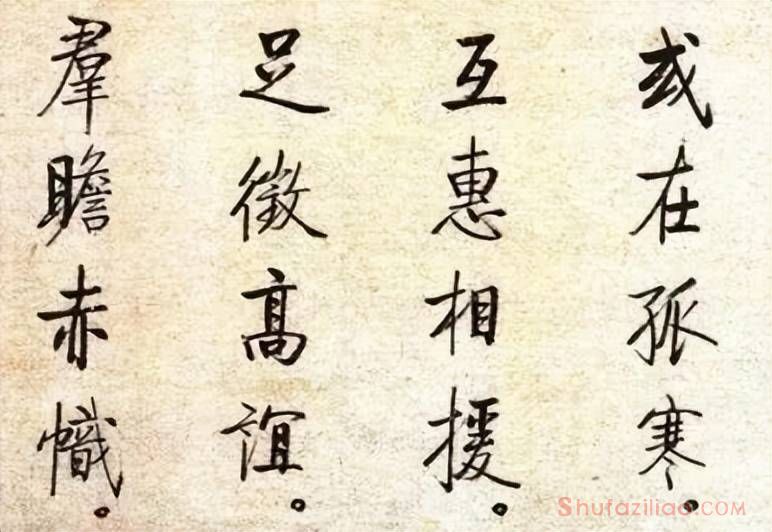 或在孤寒。
互惠相援。
足徵高誼。
羣瞻赤幟。
Shufaziliao.COM